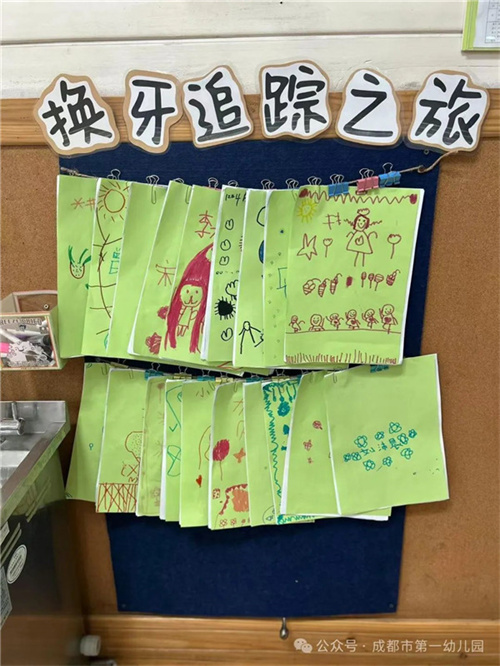 换牙追踪之旅
公众号·成都市第一幼儿园